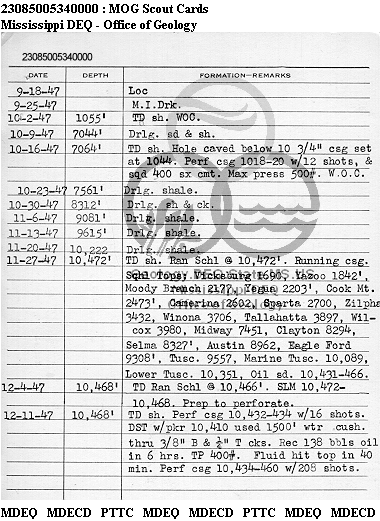 23085005340000 : MOG Scout Cards
Mississippi DEQ - Office of Geology
23085005340000
DATE DEPTH FORMATION—REMARKS
9-18-47 Loc
9-25-47 M.I.Drk.
10-2-47 1055' TD sh. WOC.
10-9-47 7044' Drlg. sd & sh.
10-16-47 7064' TD sh. Hole caved below 10 3/4" csg set
at 1044. Perf csg 1018-20 w/12 shots, &
sqd 400 sx cmt. Max press 500#. W.O.C.
10-23-47 7561' Drlg. shale.
10-30-47 8312' Drlg. sh & ck.
11-6-47 9081' Drlg. shale.
11-13-47 9615' Drlg. shale.
11-20-47 10,222 Drlg. shale.
11-27-47 10,472' TD sh. Ran Schl @ 10,472'. Running csg.
Schl Tops, Vicksburg 1690, Yazoo 1842',
Moody Branch 2177, Yegua 2203', Cook Mt.
2473', Camerina 2602, Sparta 2700, Zilpha
3432, Winona 3706, Tallahatta 3897, Wil-
cox 3980, Midway 7451, Clayton 8294,
Selma 8327', Austin 8962, Eagle Ford
9308', Tusc. 9557, Marine Tusc. 10,089,
Lower Tusc. 10,351, Oil sd. 10,431-466.
12-4-47 10,468' TD Ran Schl @ 10,466'. SLM 10,472-
10,468. Prep to perforate.
12-11-47 10,468' TD sh. Perf csg 10,432-434 w/16 shots.
DST w/pkr 10,410 used 1500' wtr cush.
thru 3/8" B & ½" T cks. Rec 138 bbls oil
in 6 hrs. TP 400#. Fluid hit top in 40
min. Perf csg 10,434-460 w/208 shots.
MDEQ MDECD PTTC MDEQ MDECD PTTC MDEQ MDECD